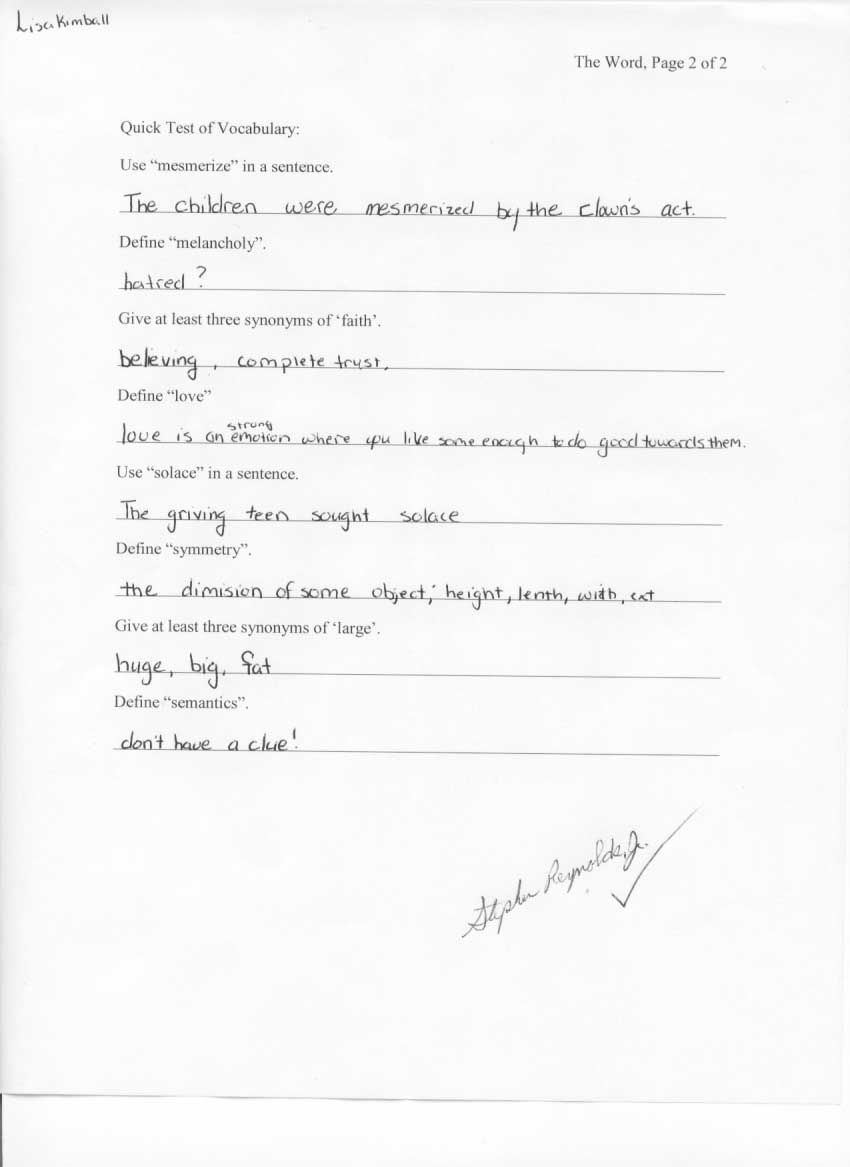 Lisa Kimball
The Word, Page 2 of 2
Quick Test of Vocabulary:
Use “mesmerize” in a sentence.
The children were mesmerized by the clown's act.
Define “melancholy”.
hatred?
Give at least three synonyms of ‘faith’.
believing, complete trust,
Define “love”
strong
love is an emotion where you like some enough to do good towards them.
Use “solace” in a sentence.
The griving teen sought solace
Define “symmetry”.
the dimision of some object; height, lenth, width, ext
Give at least three synonyms of ‘large’.
huge, big, fat
Define “semantics”.
don't have a clue!
Stephen Reynolds, Jr.